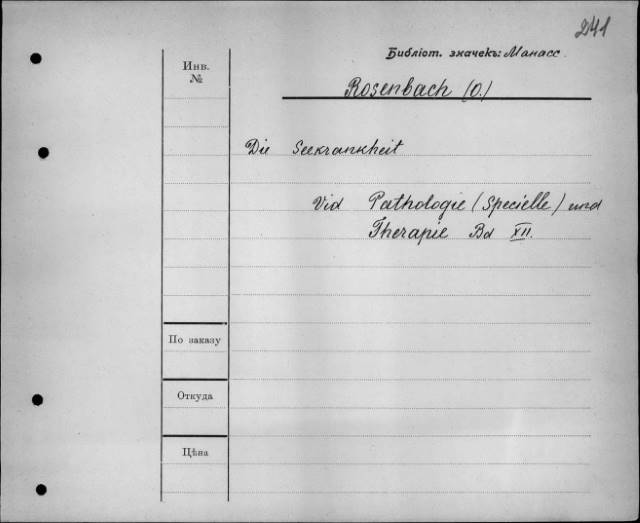 241
Библіот. значекъ: Манасс.
Инв.
№
Rosenbach (O.)
Die Seekrankheit
Vid Pathologie (Specielle) und
Therapie Bd XII.
По заказу
Откуда
Цѣна